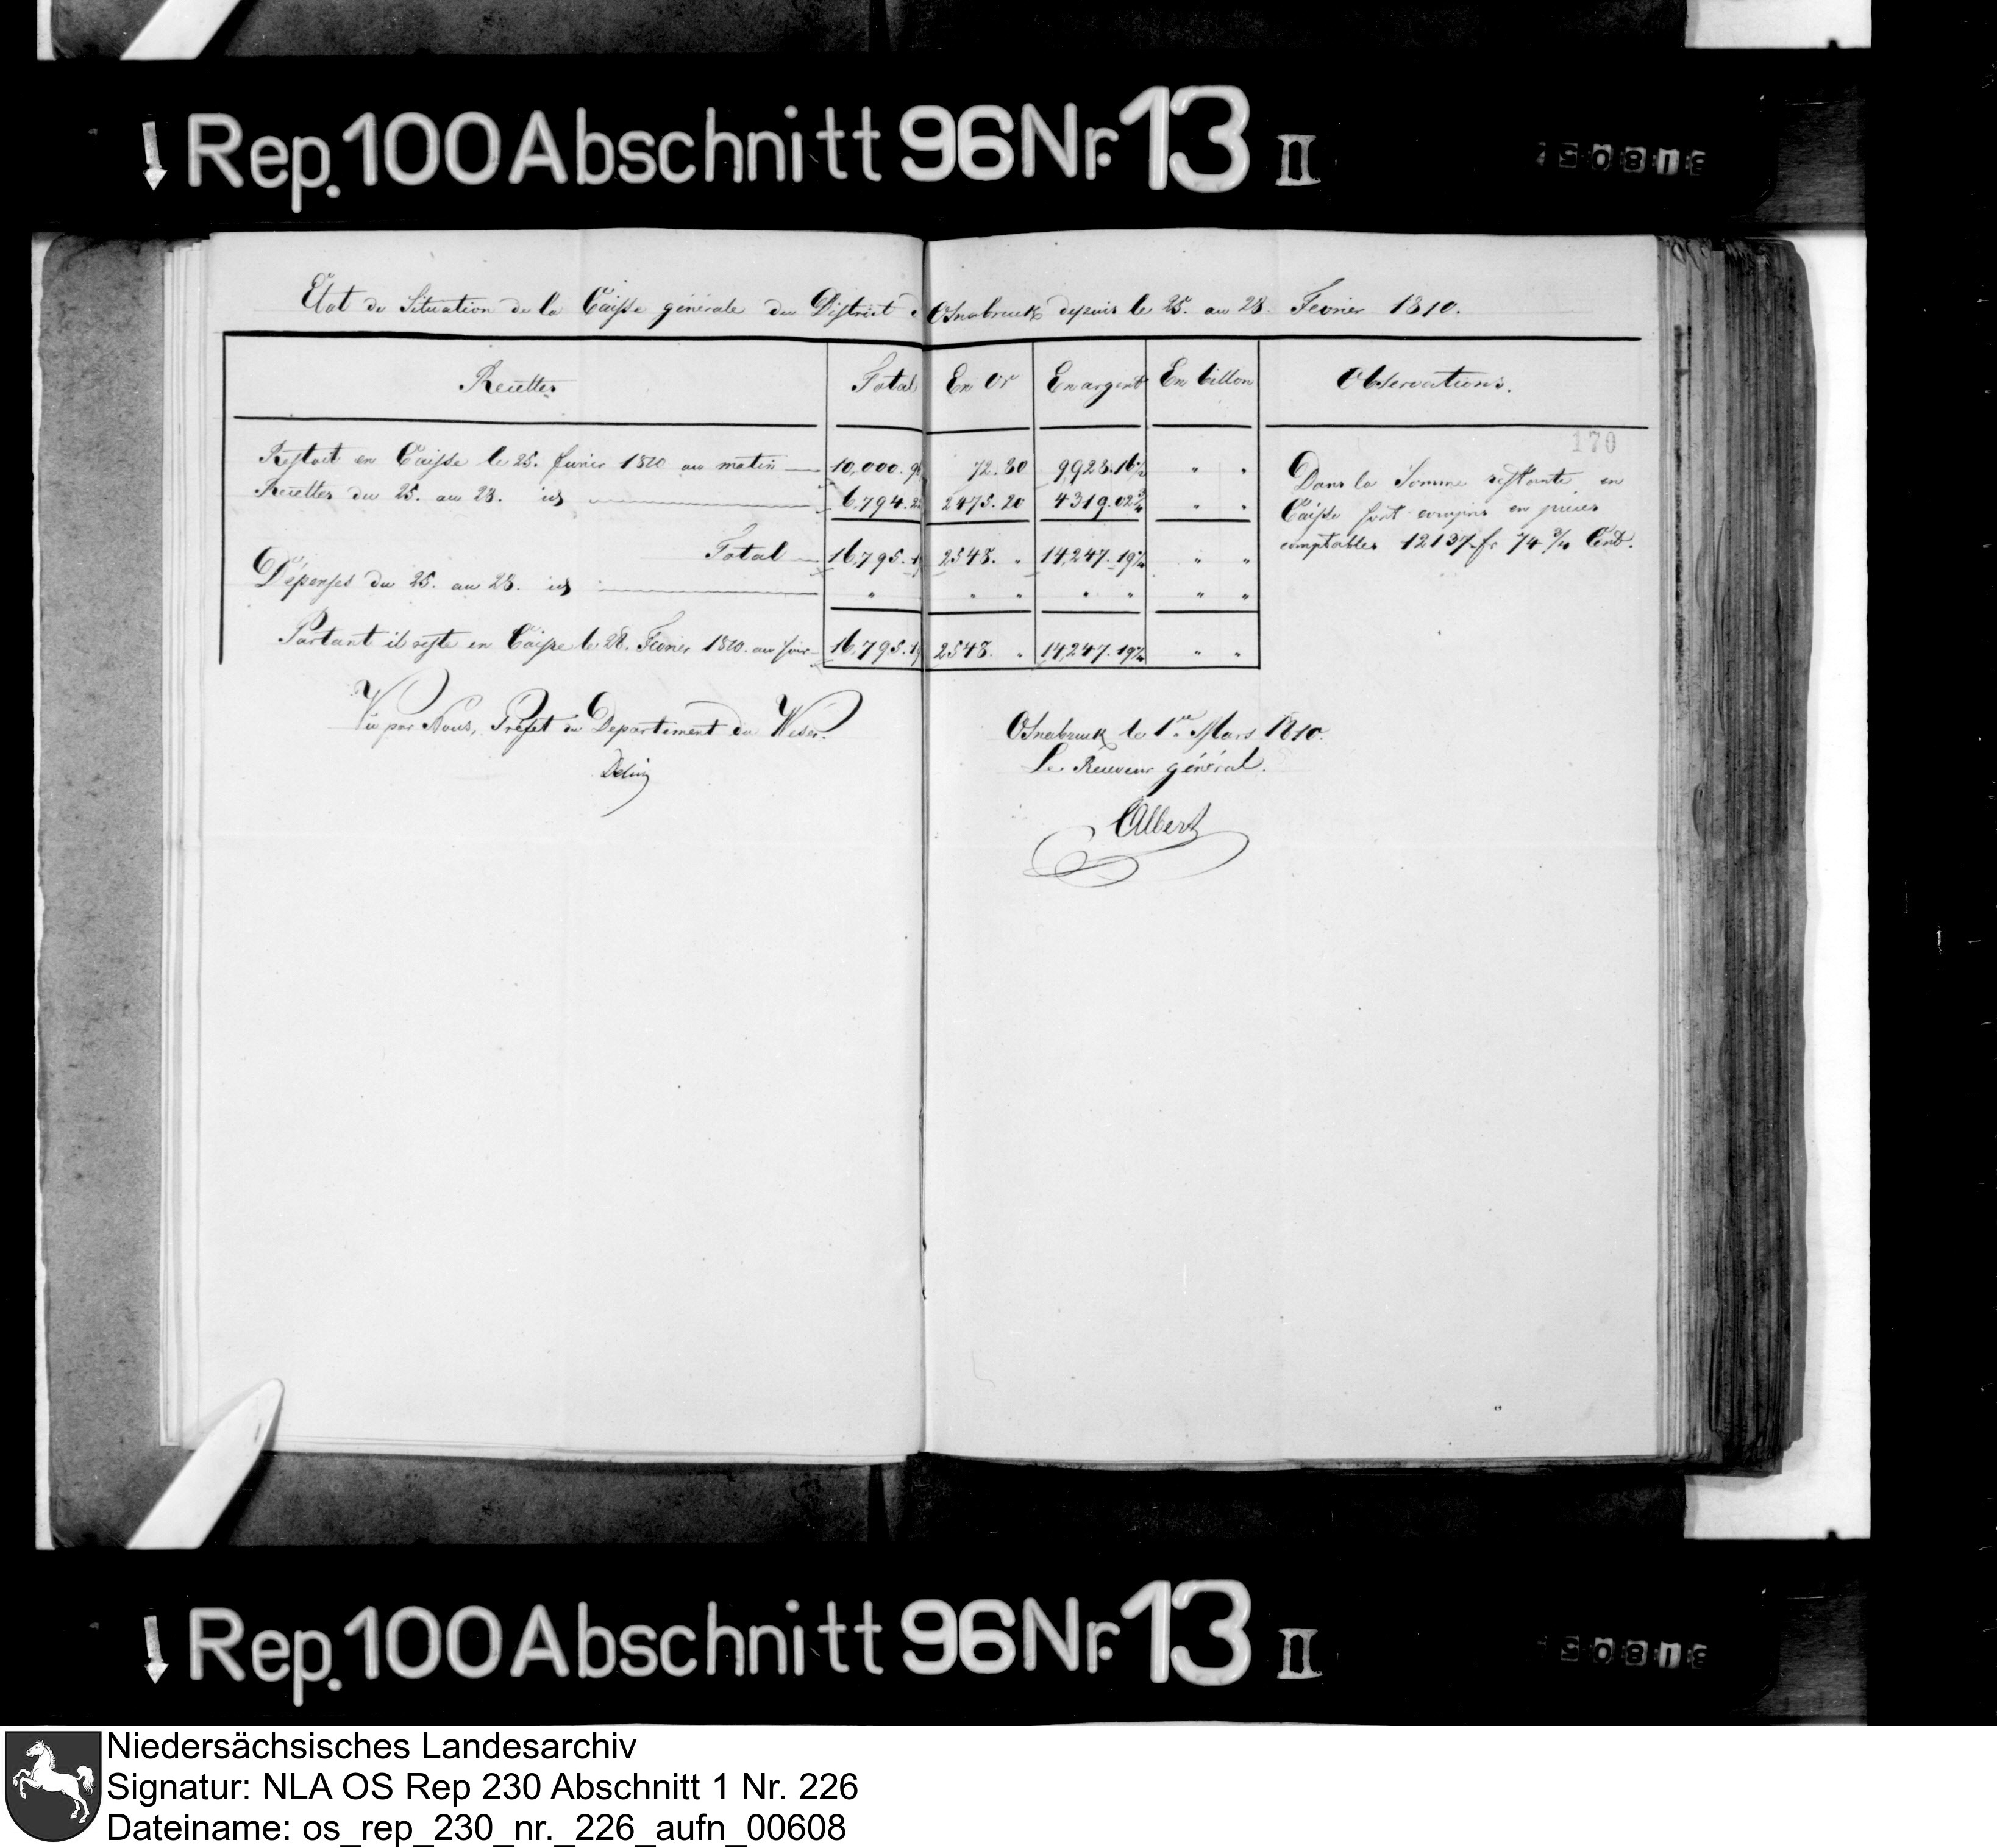 Rep. 100 Abschnitt 96 Nr. 13 II
Etat de Situation de la Caisse générale du District Osnabruck depuis le 25. au 28. Fevrier 1810.
Recettes Total En Or En argent En billon Observations.
170
Restoit en Caisse le 25. fevrier 1810 au matin 10,000. 72.80 9,928.16 " "
Recettes du 25. au 28. id 6,794. 2475.20 4319.02¾ " "
Total 16,795. 2548. " 14,247.19 " "
Dépenses du 25. au 28. id " " " " " " "
Partant il reste en Caisse le 28. Fevrier 1810. au soir 16,795. 2548. " 14,247.19 " "
Dans la Somme restante en
Caisse sont compris en pieces
comptables 12137 fr 74 ¾ Cent.
Vu par Nous, Préfet du Departement du Weser.
Delius
Osnabruck le 1er Mars 1810.
Le Receveur général.
Albert
Rep. 100 Abschnitt 96 Nr. 13 II
Niedersächsisches Landesarchiv
Signatur: NLA OS Rep 230 Abschnitt 1 Nr. 226
Dateiname: os_rep_230_nr._226_aufn_00608